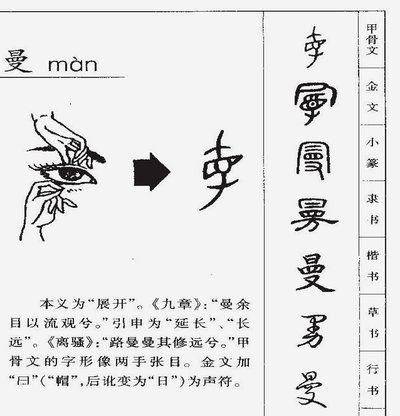 曼 màn
本义为“展开”。《九章》：“曼余
目以流观兮。”引申为“延长”、“长
远”。《离骚》：“路曼曼其修远兮。”甲
骨文的字形像两手张目。金文加
“冃”（“帽”，后讹变为“日”）为声符。
甲骨文
金文
小篆
隶书
楷书
草书
行书
曼
曼
曼
曼
曼
曼
曼